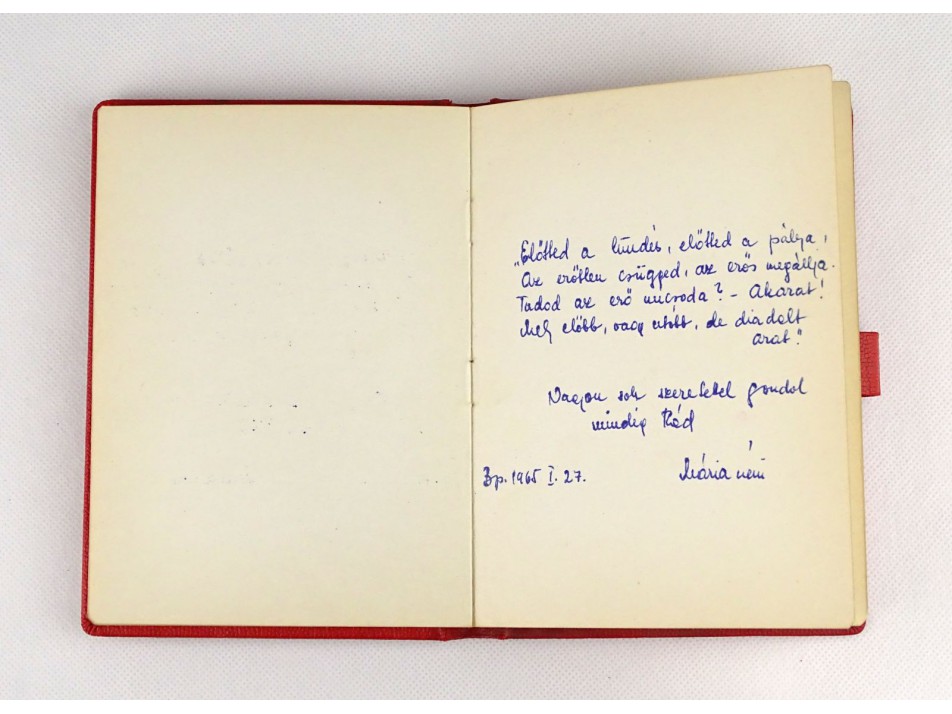 „Előtted a küzdés, előtted a pálya,
Az erőtlen csügged, az erős megállja.
Tudod az erő micsoda? - Akarat!
Mely előbb, vagy utóbb, de diadalt
arat."
Nagyon sok szeretettel gondol
mindig Rád
Mária néni
Bp. 1965 I. 27.